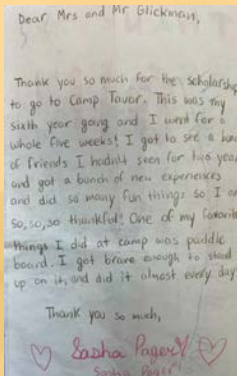 Dear Mrs and Mr Glickman,
Thank you so much for the scholarship
to go to Camp Tavor. This was my
sixth year going and I went for a
whole five weeks! I got to see a bunch
of friends I hadn't seen for two years
and got a bunch of new experiences
and did so many fun things so I am
so, so, so thankful! One of my favorite
things I did at camp was paddle
board. I got brave enough to stand
up on it, and did it almost every day!
Thank you so much,
Sasha Pager
Sasha Pager